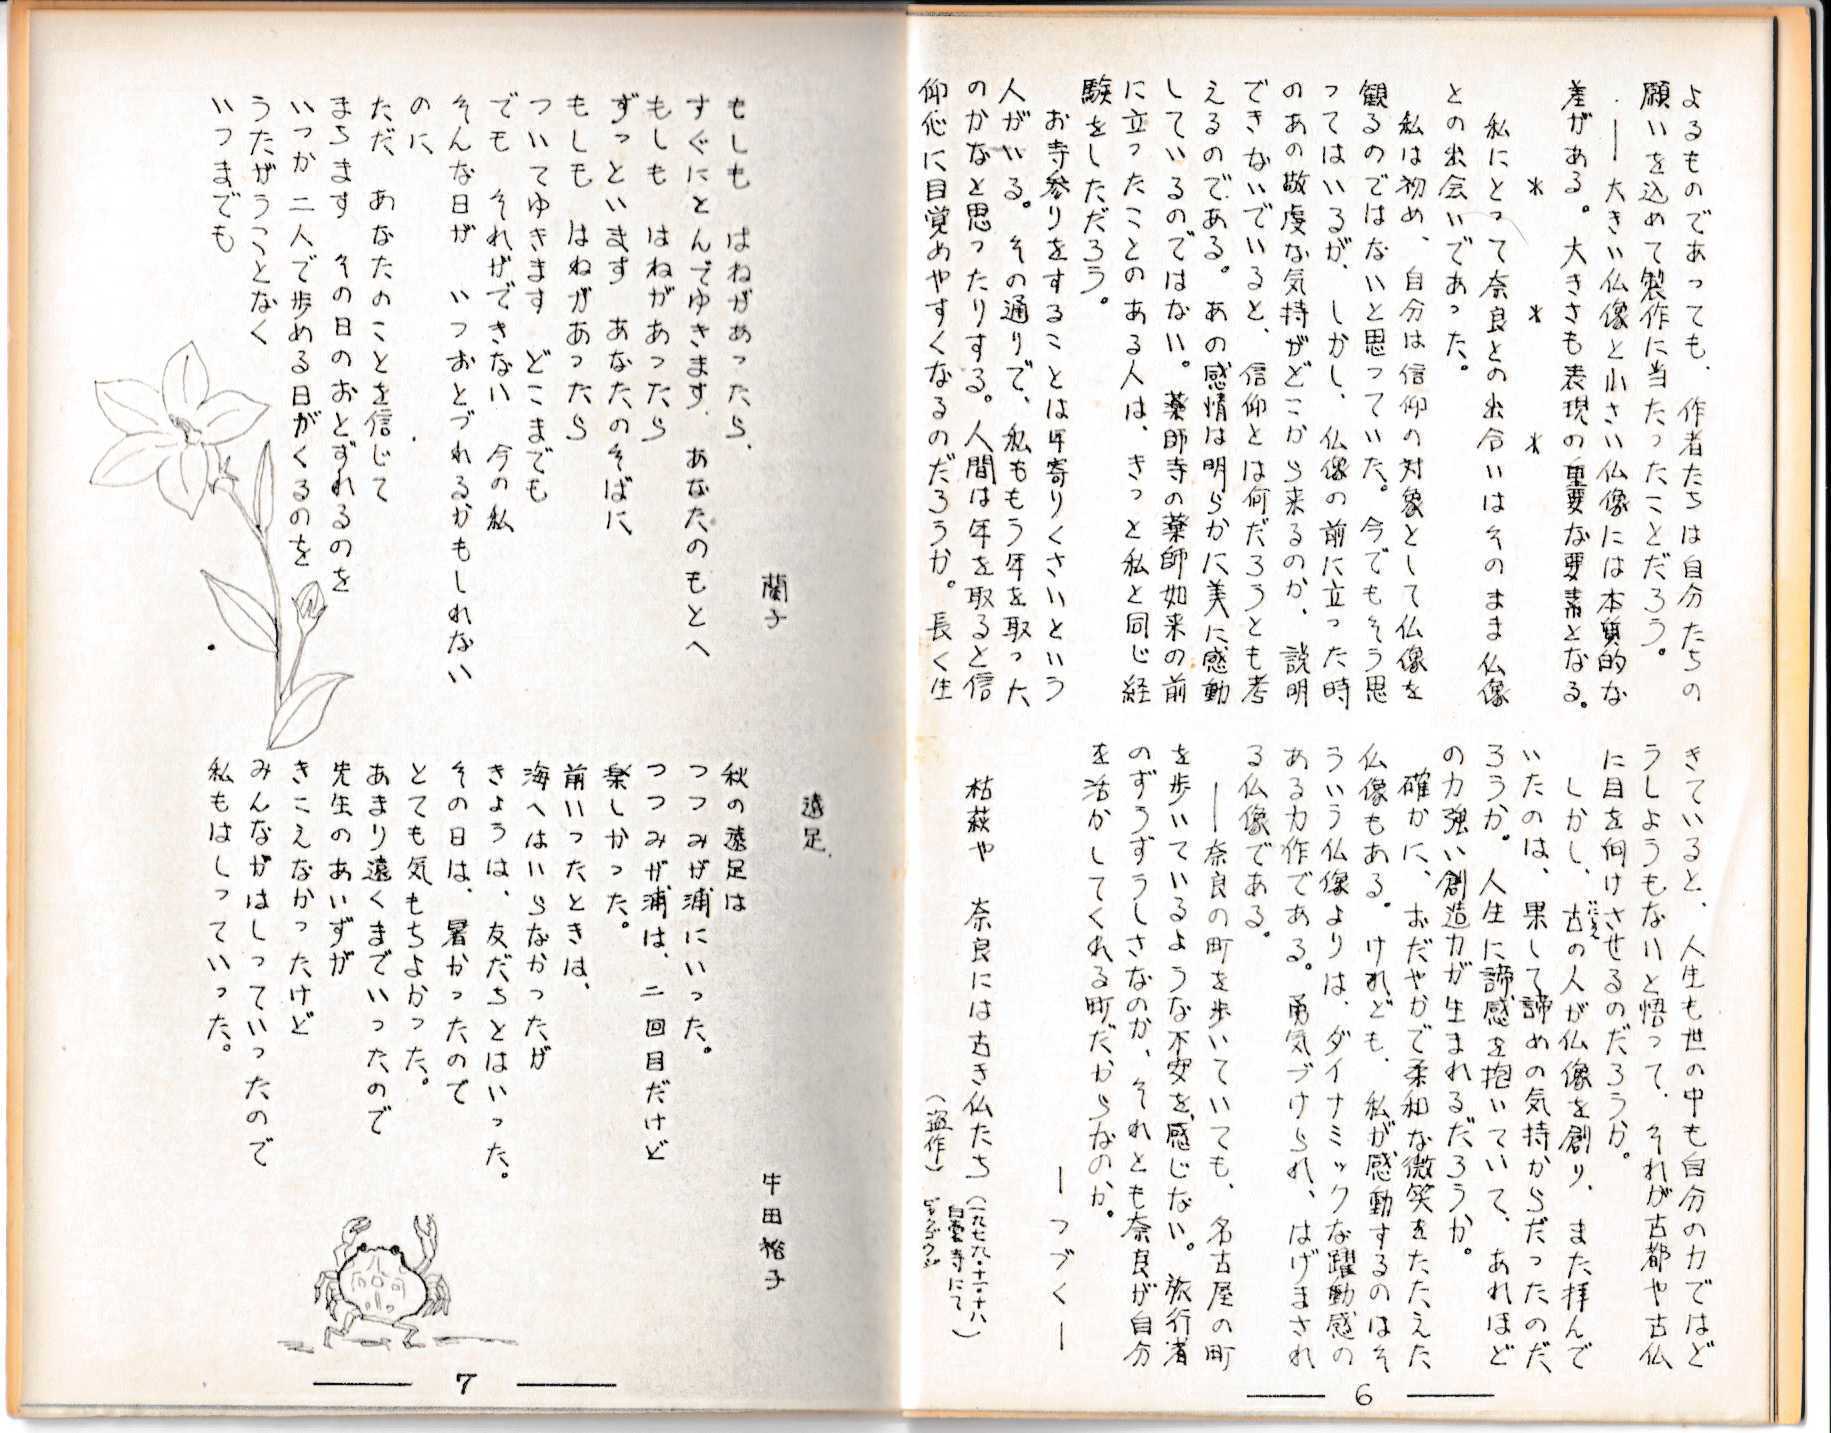 よるものであっても、作者たちは自分たちの
願いを込めて製作に当たったことだろう。
・― 大きい仏像と小さい仏像には本質的な
差がある。大きさも表現の重要な要素となる。
＊　＊　＊
私にとって奈良との出合いはそのまま仏像
との出会いであった。
私は初め、自分は信仰の対象として仏像を
観るのではないと思っていた。今でもそう思
ってはいるが、しかし、仏像の前に立った時
のあの敬虔な気持がどこから来るのか、説明
できないでいると、信仰とは何だろうとも考
えるのである。あの感情は明らかに美に感動
しているのではない。薬師寺の薬師如来の前
に立ったことのある人は、きっと私と同じ経
験をしただろう。
お寺参りをすることは年寄りくさいという
人がいる。その通りで、私ももう年を取った
のかなと思ったりする。人間は年を取ると信
仰心に目覚めやすくなるのだろうか。長く生
きていると、人生も世の中も自分の力ではど
うしようもないと悟って、それが古都や古仏
に目を向けさせるのだろうか。
しかし、古の人が仏像を創り、また拝んで
いにしえ
いたのは、果して諦めの気持からだったのだ
ろうか。人生に諦感を抱いていて、あれほど
の力強い創造力が生まれるだろうか。
確かに、おだやかで柔和な微笑をたたえた
仏像もある。けれども、私が感動するのはそ
ういう仏像よりは、ダイナミックな躍動感の
ある力作である。勇気づけられ、はげまされ
る仏像である。
―奈良の町を歩いていても、名古屋の町
を歩いているような不安を感じない。旅行者
のずうずうしさなのか、それとも奈良が自分
を活かしてくれる町だからなのか。
―つづく―
枯萩や　奈良には古き仏たち
（一九七九・十一・十八
白雲寺にて）
（盗作）
6
蘭子
もしも　はねがあったら、
すぐにとんでゆきます　あなたのもとへ
もしも　はねがあったら
ずっといます　あなたのそばに
もしも　はねがあったら
ついてゆきます　どこまでも
でも　それができない　今の私
そんな日が　いつおとづれるかもしれない
のに、
ただ　あなたのことを信じて
まちます　その日のおとずれるのを
いつか　二人で歩める日がくるのを
うたがうことなく
いつまでも
遠足
牛田裕子
秋の遠足は
つつみが浦にいった。
つつみが浦は、二回目だけど
楽しかった。
前いったときは、
海へはいらなかったが
きょうは、友だちとはいった。
その日は、暑かったので
とても気もちよかった。
あまり遠くまでいったので
先生のあいずが
きこえなかったけど
みんながはしっていったので
私もはしっていった。
7